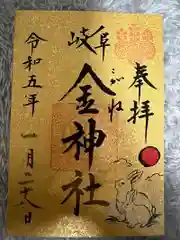 奉拝
岐阜
金神社
こがね
令和五年
一月二十八日